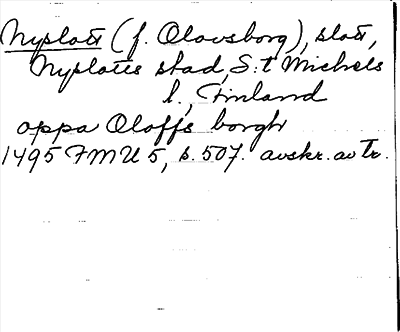 Nyslott (f. Olovsborg), slott,
Nyslotts stad, S:t Michels
l., Finland
oppa Oloffs borgh
1495 FMU 5, s. 507. avskr. av tr.